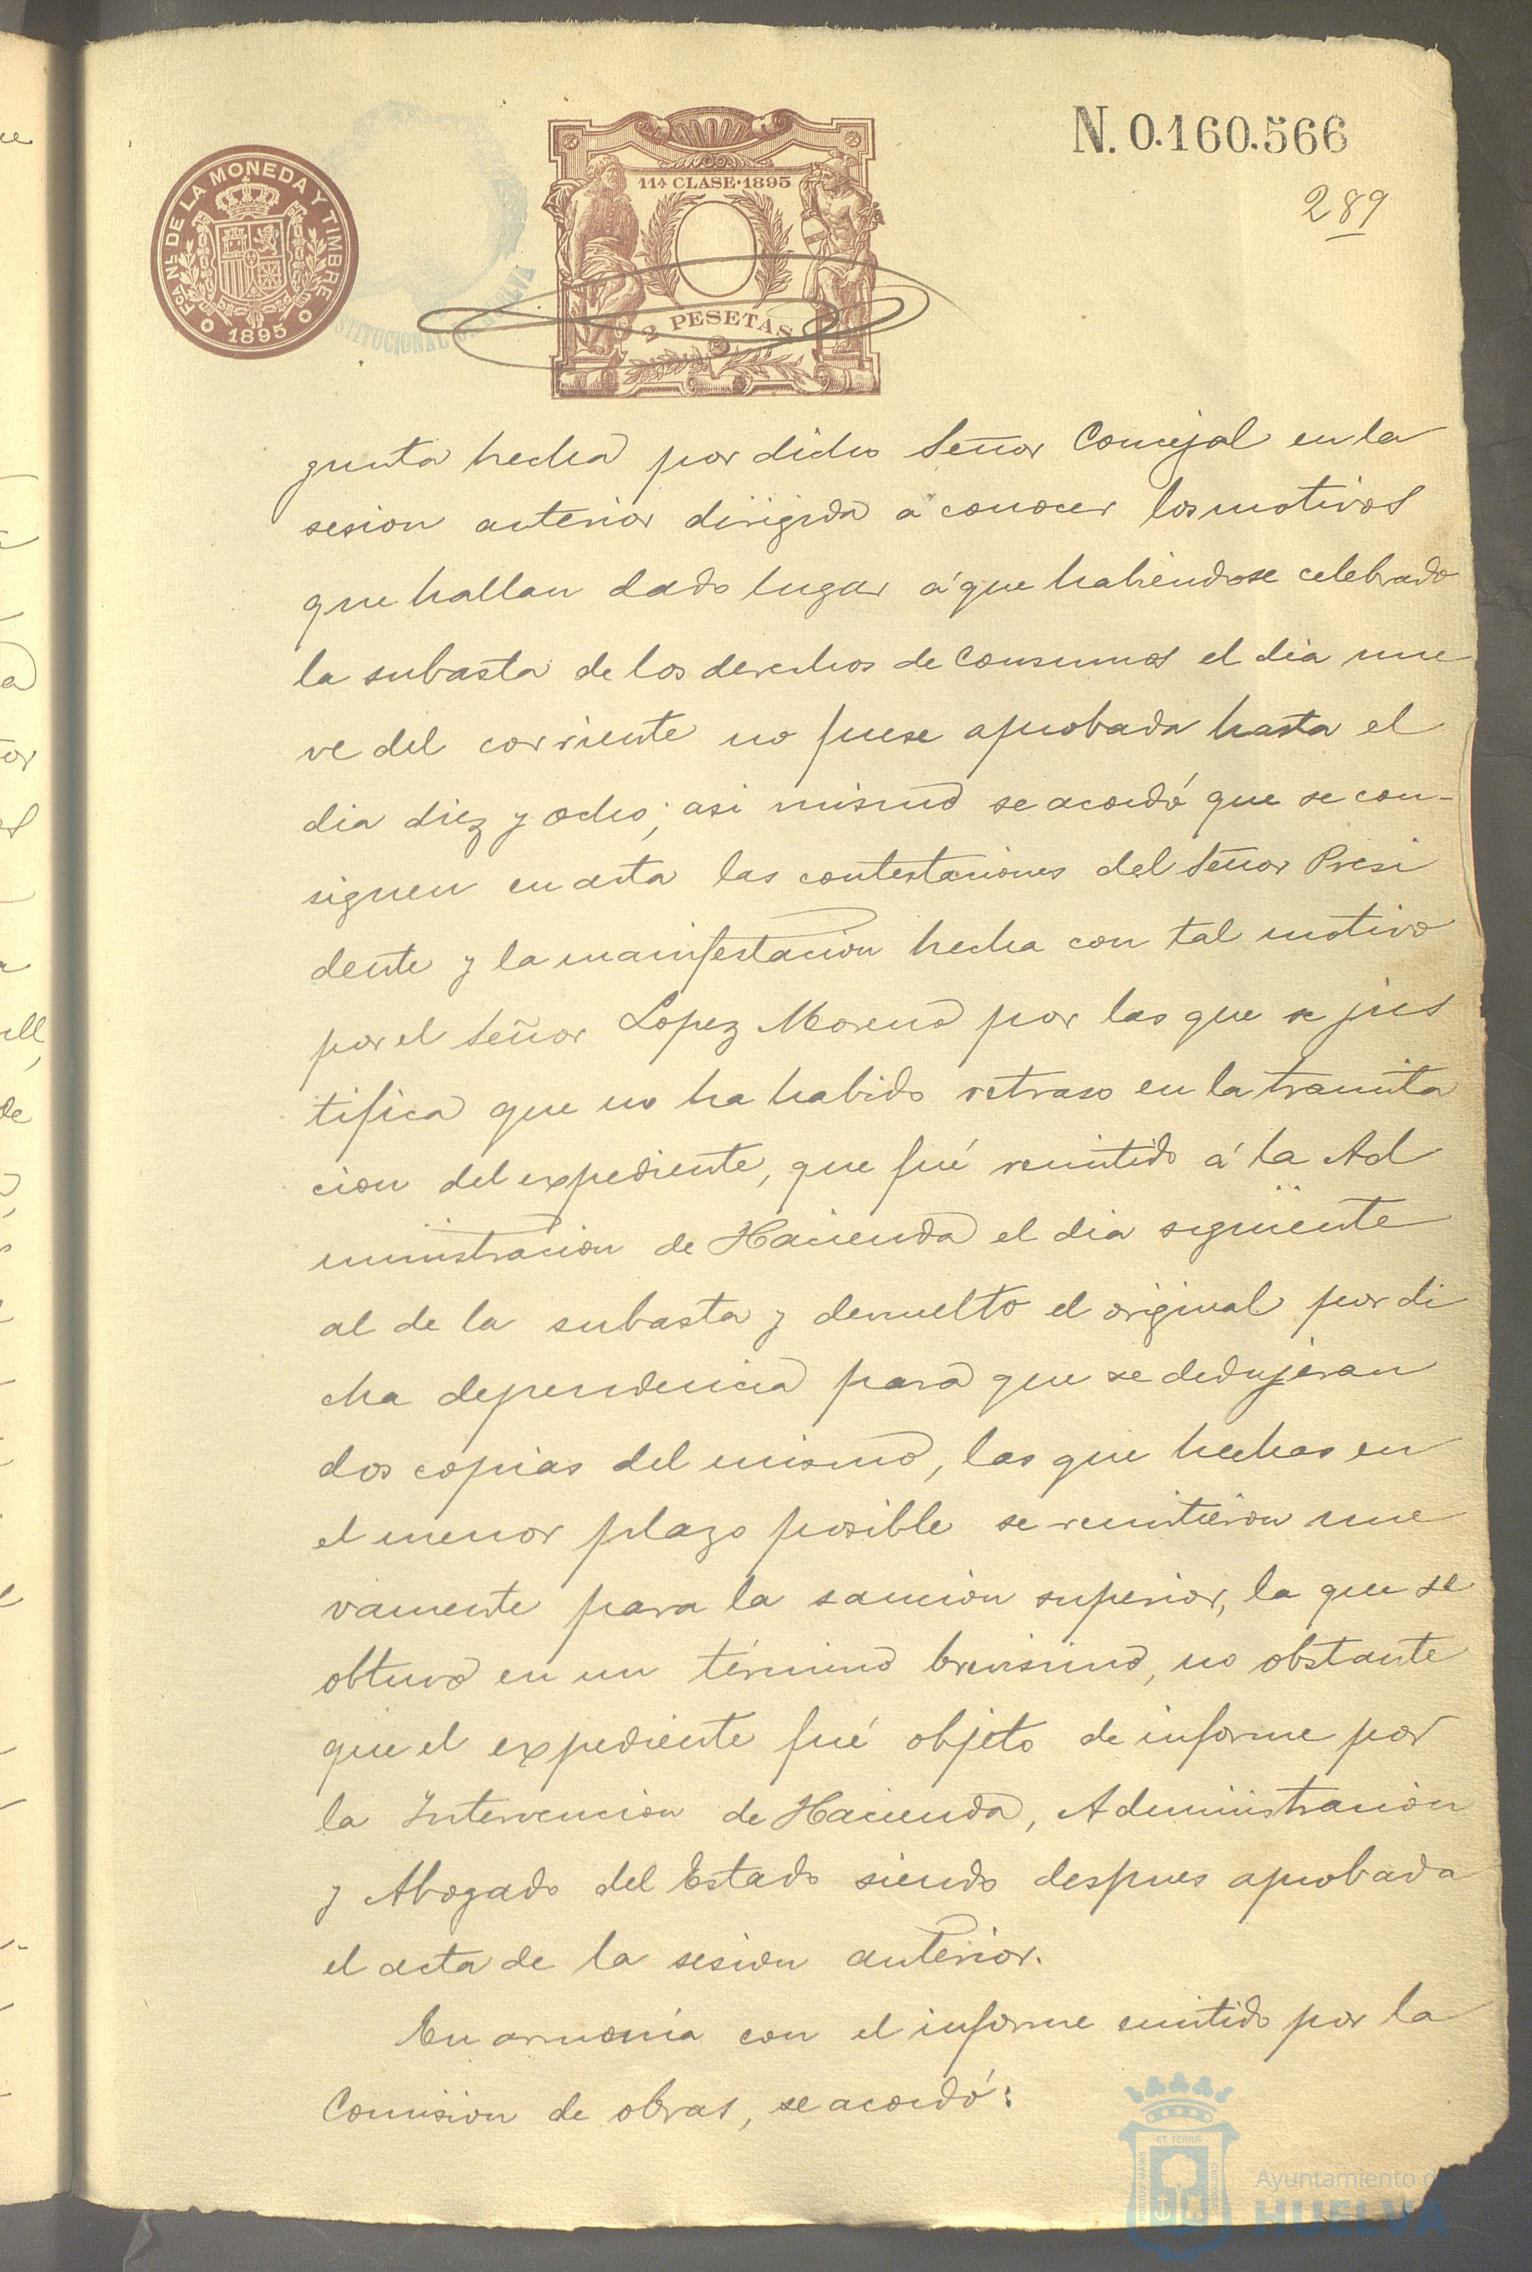 N. 0.160.566
289
FCA. NL. DE LA MONEDA Y TIMBRE
1895
STITUCIONAL
11ª CLASE·1895
2 PESETAS
gunta hecha por dicho Señor Concejal en la
sesion anterior dirigida á conocer los motivos
que hallan dado lugar á que habiendose celebrado
la subasta de los derechos de Consumos el dia nue
ve del corriente no fuese aprobada hasta el
dia diez y ocho; asi mismo se acordó que se con-
signen en acta las contestaciones del Señor Presi
dente y la manifestacion hecha con tal motivo
por el Señor Lopez Moreno por las que se jus
tifica que no ha habido retraso en la tramita
cion del expediente, que fué remitido á la Ad
ministracion de Hacienda el dia siguiente
al de la subasta y devuelto el original por di
cha dependencia para que se dedujeran
dos copias del mismo, las que hechas en
el menor plazo posible se remitieron nue
vamente para la sancion superior, la que se
obtuvo en un término brevisimo, no obstante
que el expediente fué objeto de informe por
la Intervencion de Hacienda, Administracion
y Abogado del Estado siendo despues aprobada
el acta de la sesion anterior.
En armonia con el informe emitido por la
Comision de obras, se acordó:
ET TERRÆ
Ayuntamiento de
HUELVA